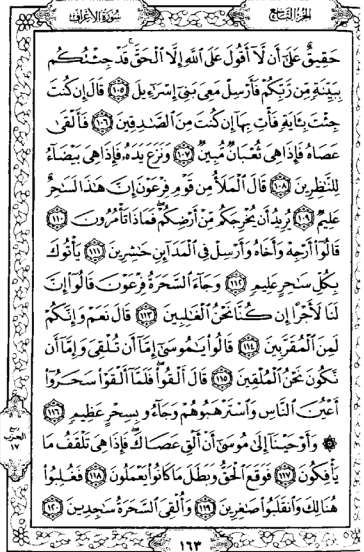 الجزء التاسع
سورة الأعراف
حَقِيقٌ عَلَىٰٓ أَن لَّآ أَقُولَ عَلَى ٱللَّهِ إِلَّا ٱلْحَقَّ ۚ قَدْ جِئْتُكُم
بِبَيِّنَةٍ مِّن رَّبِّكُمْ فَأَرْسِلْ مَعِىَ بَنِىٓ إِسْرَٰٓءِيلَ ١٠٥ قَالَ إِن كُنتَ
جِئْتَ بِـَٔايَةٍ فَأْتِ بِهَآ إِن كُنتَ مِنَ ٱلصَّـٰدِقِينَ ١٠٦ فَأَلْقَىٰ
عَصَاهُ فَإِذَا هِىَ ثُعْبَانٌ مُّبِينٌ ١٠٧ وَنَزَعَ يَدَهُۥ فَإِذَا هِىَ بَيْضَآءُ
لِلنَّـٰظِرِينَ ١٠٨ قَالَ ٱلْمَلَأُ مِن قَوْمِ فِرْعَوْنَ إِنَّ هَـٰذَا لَسَـٰحِرٌ
عَلِيمٌ ١٠٩ يُرِيدُ أَن يُخْرِجَكُم مِّنْ أَرْضِكُمْ ۖ فَمَاذَا تَأْمُرُونَ ١١٠
قَالُوٓا۟ أَرْجِهْ وَأَخَاهُ وَأَرْسِلْ فِى ٱلْمَدَآئِنِ حَـٰشِرِينَ ١١١ يَأْتُوكَ
بِكُلِّ سَـٰحِرٍ عَلِيمٍ ١١٢ وَجَآءَ ٱلسَّحَرَةُ فِرْعَوْنَ قَالُوٓا۟ إِنَّ
لَنَا لَأَجْرًا إِن كُنَّا نَحْنُ ٱلْغَـٰلِبِينَ ١١٣ قَالَ نَعَمْ وَإِنَّكُمْ
لَمِنَ ٱلْمُقَرَّبِينَ ١١٤ قَالُوا۟ يَـٰمُوسَىٰٓ إِمَّآ أَن تُلْقِىَ وَإِمَّآ أَن
نَّكُونَ نَحْنُ ٱلْمُلْقِينَ ١١٥ قَالَ أَلْقُوا۟ ۖ فَلَمَّآ أَلْقَوْا۟ سَحَرُوٓا۟
أَعْيُنَ ٱلنَّاسِ وَٱسْتَرْهَبُوهُمْ وَجَآءُو بِسِحْرٍ عَظِيمٍ ١١٦
۞ وَأَوْحَيْنَآ إِلَىٰ مُوسَىٰٓ أَنْ أَلْقِ عَصَاكَ ۖ فَإِذَا هِىَ تَلْقَفُ مَا
يَأْفِكُونَ ١١٧ فَوَقَعَ ٱلْحَقُّ وَبَطَلَ مَا كَانُوا۟ يَعْمَلُونَ ١١٨ فَغُلِبُوا۟
هُنَالِكَ وَٱنقَلَبُوا۟ صَـٰغِرِينَ ١١٩ وَأُلْقِىَ ٱلسَّحَرَةُ سَـٰجِدِينَ ١٢٠
ربع
الحزب
١٧
١٦٣